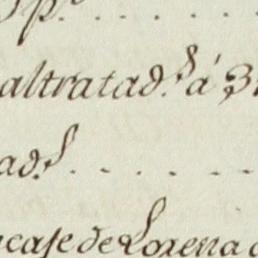 altratad.s á 3
ad.s
ncaje de Lorena